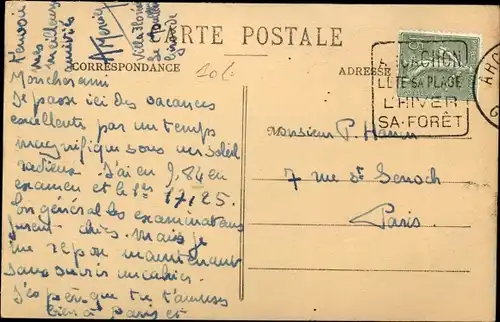 CARTE POSTALE
CORRESPONDANCE
ADRESSE
10f
Mon cher ami
Je passe ici des vacances
excellentes par un temps
magnifique sous un soleil
radieux. J'ai en 9,84 en
examen et le 1er 17,25.
En général les examinateurs
furent chics. Mais je
me repose maintenant
sans ouvrir un cahier.
J'espère que tu t'amuses
bien à Paris et
Reçois
mes
meilleures
amitiés
Villa
ARCACHON
L'ÉTÉ SA PLAGE
L'HIVER
SA FORÊT
Monsieur P. Hamon
7 rue St Senoch
Paris